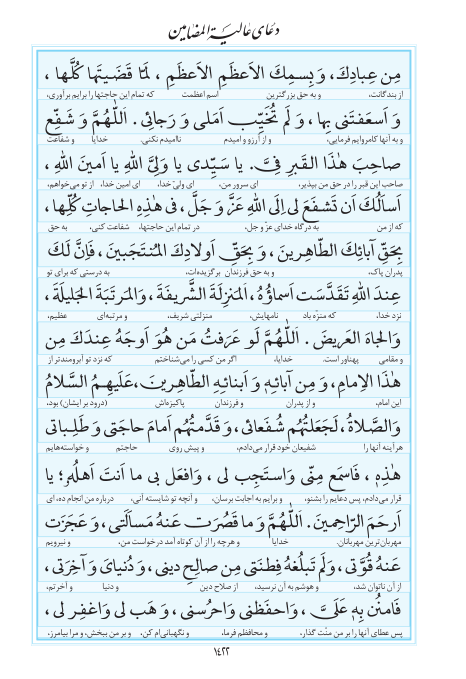 دعای عالیة المضامین
مِن عِبادِكَ، وَ بِسمِكَ الاَعظَمِ الاَعظَمِ ، لَمّا قَضَيتَها كُلَّها ،
از بندگانت، و به حق بزرگترین اسم اعظمت که تمام این حاجتها را برایم برآوری،
وَ اَسعَفتَنی بِها ، وَ لَم تُخَيِّب اَمَلی وَ رَجائی . اَللّٰهُمَّ وَ شَفِّع
و به آنها کامروایم فرمایی، و از آرزو و امیدم ناامیدم نکنی. خدایا و شفاعت
صاحِبَ هٰذَا القَبرِ فِیَّ . يا سَيِّدی يا وَلِیَّ اللهِ يا اَمينَ اللهِ ،
صاحب این قبر را در حق من بپذیر، ای سرور من، ای ولیّ خدا، ای امین خدا، از تو می‌خواهم،
اَسأَلُكَ اَن تَشفَعَ لی اِلَی اللهِ عَزَّ وَ جَلَّ ، فی هٰذِهِ الحاجاتِ كُلِّها ،
که از من به درگاه خدای عزّ و جل، در تمام این حاجتها، شفاعت کنی، به حق
بِحَقِّ آبائِكَ الطّاهِرينَ ، وَ بِحَقِّ اَولادِكَ المُنتَجَبينَ ، فَاِنَّ لَكَ
پدران پاک، و به حق فرزندان برگزیده‌ات، به درستی که برای تو
عِندَ اللهِ تَقَدَّسَت اَسماؤُهُ ، اَلمَنزِلَةَ الشَّريفَةَ ، وَالمَرتَبَةَ الجَليلَةَ ،
نزد خدا، که منزّه باد نامهایش، منزلتی شریف، و مرتبه‌ای عظیم،
وَالجاهَ العَريضَ . اَللّٰهُمَّ لَو عَرَفتُ مَن هُوَ اَوجَهُ عِندَكَ مِن
و مقامی پهناور است. خدایا، اگر من کسی را می‌شناختم که نزد تو آبرومندتر از
هٰذَا الاِمامِ ، وَ مِن آبائِهِ وَ اَبنائِهِ الطّاهِرينَ ، عَلَيهِمُ السَّلامُ
این امام، و از پدران و فرزندان پاکیزه‌اش (درود بر ایشان) بود،
وَالصَّلاةُ ، لَجَعَلتُهُم شُفَعائی ، وَ قَدَّمتُهُم اَمامَ حاجَتی وَ طَلِباتی
هرآینه آنها را شفیعان خود قرار می‌دادم، و پیش روی حاجتم و خواسته‌هایم
هٰذِهِ ، فَاسمَع مِنّی وَاستَجِب لی ، وَافعَل بی ما اَنتَ اَهلُهُ ؛ يا
قرار می‌دادم، پس دعایم را بشنو، و برایم به اجابت برسان، و آنچه تو شایسته آنی، درباره من انجام ده، ای
اَرحَمَ الرّاحِمينَ . اَللّٰهُمَّ وَ ما قَصُرَت عَنهُ مَسأَلَتی ، وَ عَجَزَت
مهربان‌ترین مهربانان. خدایا و هر چه را از آن کوتاه آمد درخواست من، و نیرویم
عَنهُ قُوَّتی ، وَلَم تَبلُغهُ فِطنَتی مِن صالِحِ دينی ، وَ دُنيایَ وَ آخِرَتی ،
از آن ناتوان شد، و هوشم به آن نرسید، از صلاح دین و دنیا و آخرتم،
فَامنُن بِهِ عَلَیَّ ، وَاحفَظنی وَاحرُسنی ، وَ هَب لی وَاغفِر لی ،
پس عطای آنها را بر من منّت گذار، و محافظم فرما، و نگهبانی‌ام کن، و بر من ببخش، و مرا بیامرز،
١٤٢٢